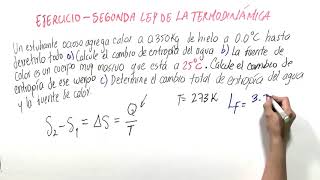 EJERCICIO - SEGUNDA LEY DE LA TERMODINÁMICA
Un estudiante ocioso agrega calor a 0.350Kg de hielo a 0.0°C hasta
derretirlo todo a) Calcule el cambio de entropía del agua b) la fuente de
calor es un cuerpo muy masivo que está a 25°C. Calcule el cambio de
entropía de ese cuerpo c) Determine el cambio total de entropía del agua
y la fuente de calor.
T= 273K L_f = 3.
S₂-S₁ = ΔS = Q/T